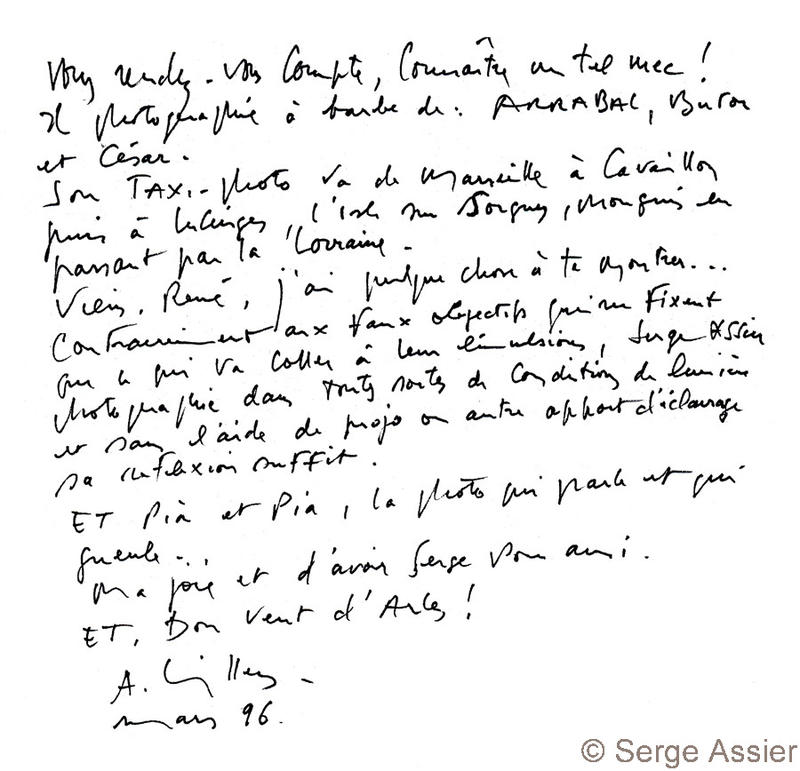 Vous rendez-vous Compte, Connaître un tel mec !
Il photographie à barbe de : ARRABAL, Butor
et César.
Son TAXI-photo va de Marseille à Cavaillon
puis à Lucinges, l'Isle sur Sorgues, Mougins en
passant par la Lorraine -
Viens, René, j'ai quelque chose à te montrer...
Contrairement aux faux objectifs qui ne Fixent
que ce qui va coller à leur émulsions, Serge Assier
photographie dans toutes sortes de Conditions de lumière
et sans l'aide de projo ou autre apport d'éclairage
sa réflexion suffit.
ET Pia et Pia, la photo qui parle et qui
gueule...
Ma joie et d'avoir Serge pour ami.
ET, Bon vent d'Arles !
A.
mars 96.
© Serge Assier